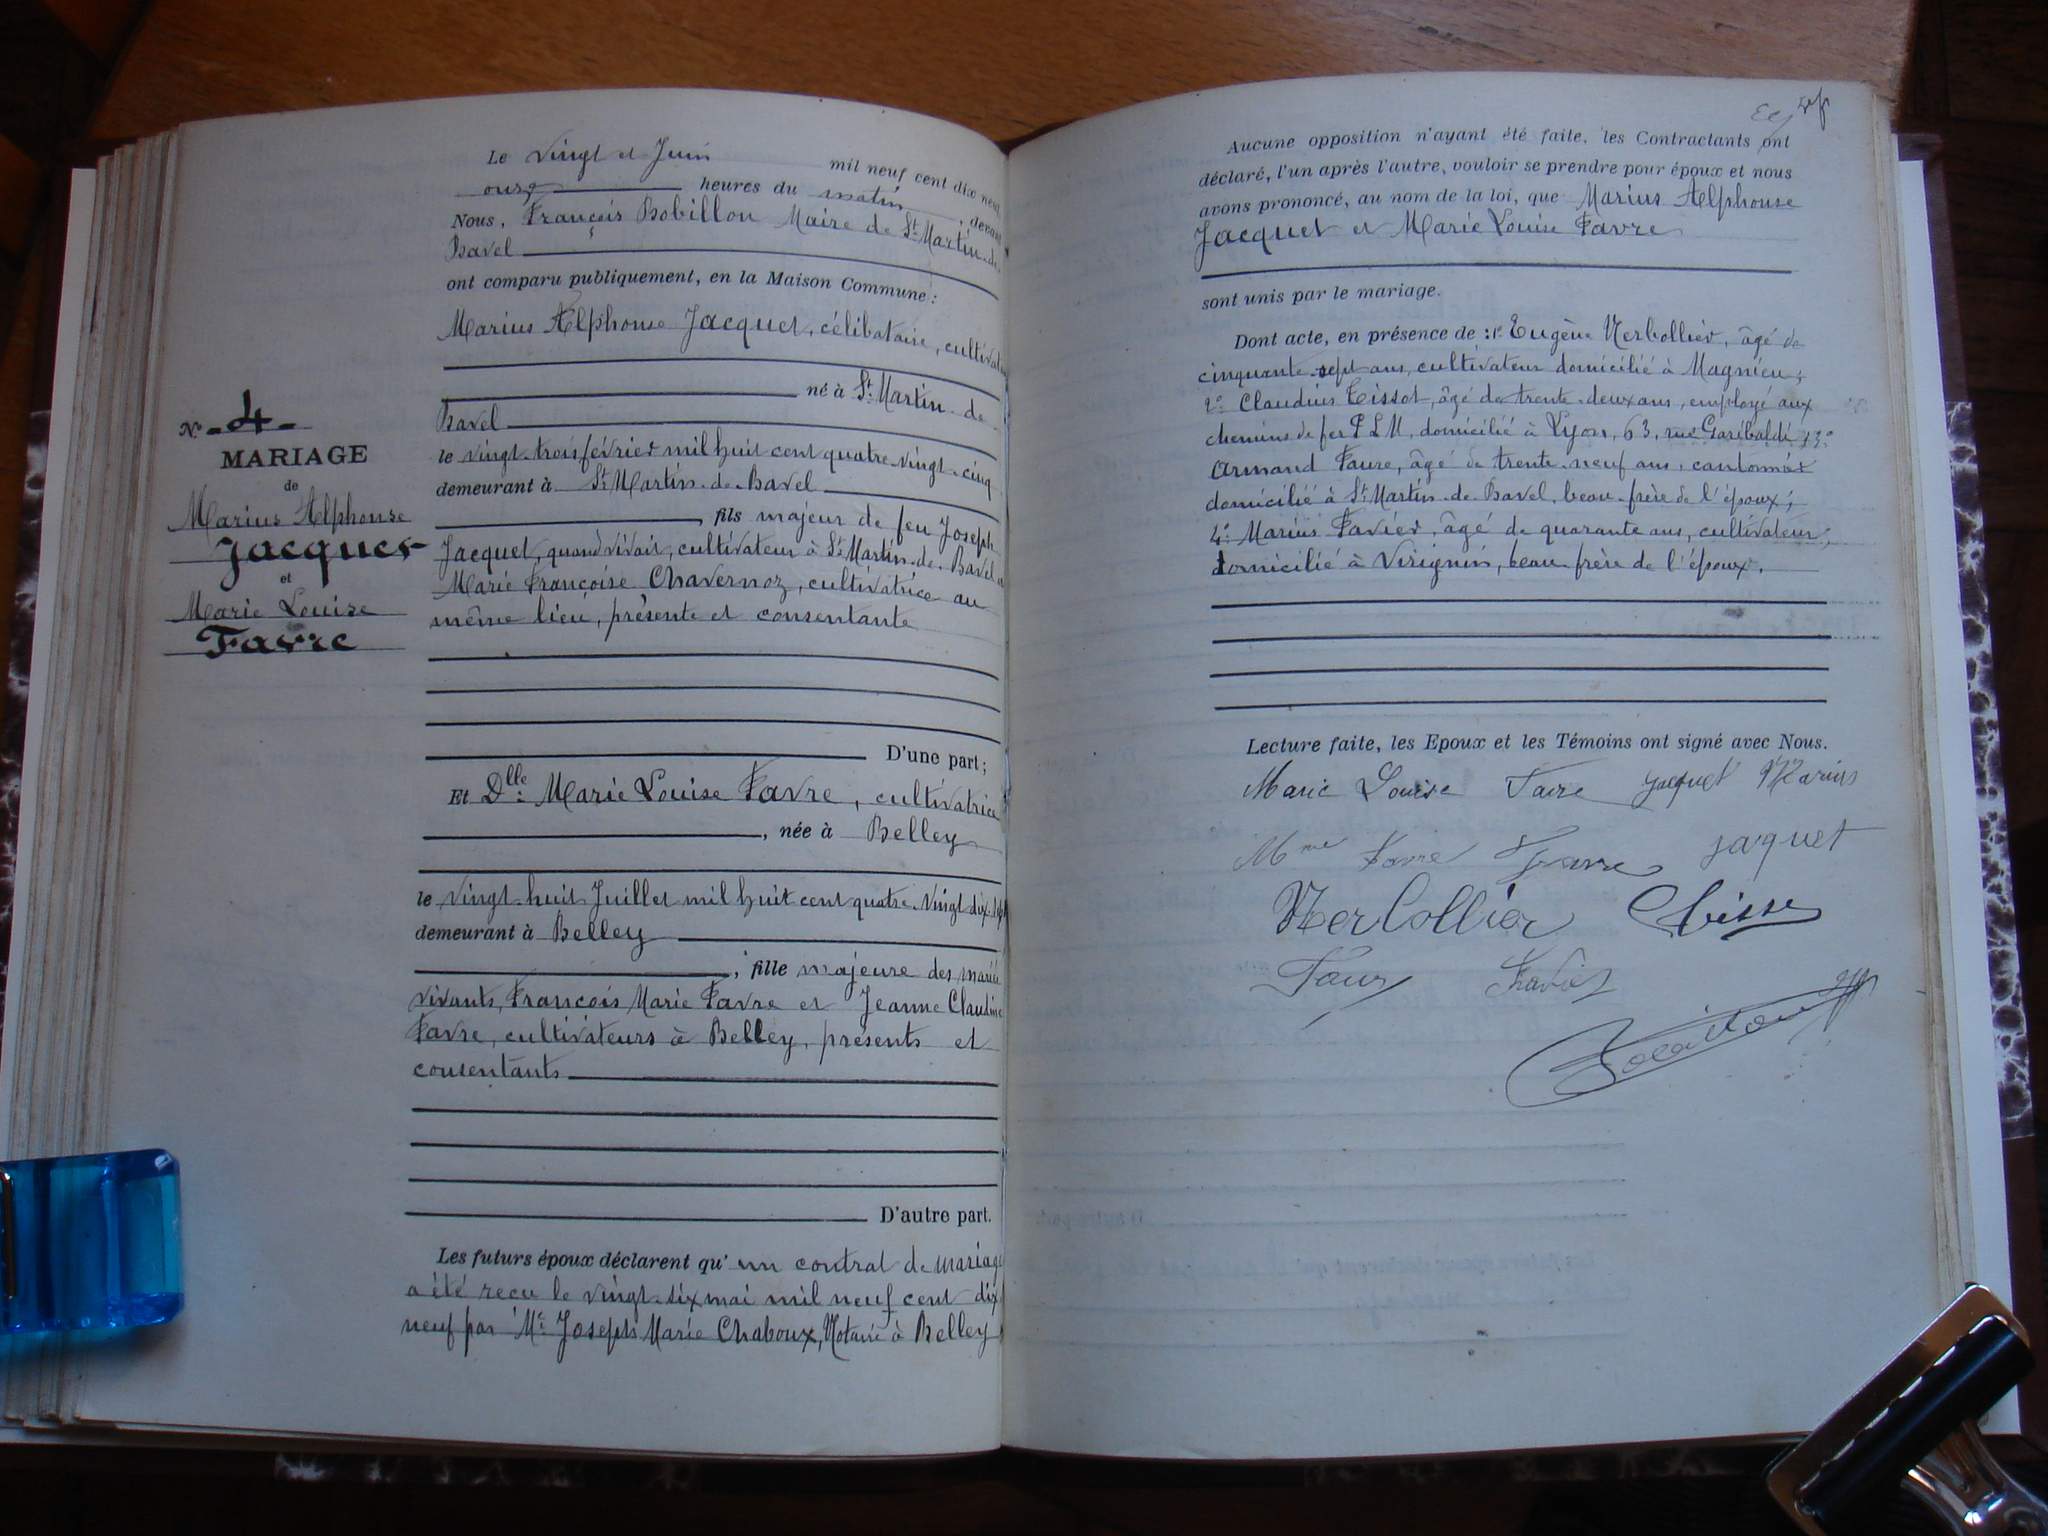 Le vingt et Juin mil neuf cent dix neuf,
onze heures du matin, devant
Nous, François Bobillon Maire de St Martin-de-
Bavel
ont comparu publiquement, en la Maison Commune :
Marius Alphonse Jacquet, célibataire, cultivateur
né à St Martin-de-
Bavel
le vingt-trois février mil huit cent quatre-vingt-cinq
demeurant à St Martin-de-Bavel
, fils majeur de feu Joseph
Jacquet, quand vivait, cultivateur à St Martin-de-Bavel et
Marie Françoise Chavernoz, cultivatrice au
même lieu, présente et consentante
N° -4-
MARIAGE
de
Marius Alphonse
Jacquet
et
Marie Louise
Favre
D'une part;
Et Dlle Marie Louise Favre, cultivatrice
, née à Belley
le vingt-huit Juillet mil huit cent quatre-vingt dix-sept
demeurant à Belley
, fille majeure des mariés
vivants, François Marie Favre et Jeanne Claudine
Favre, cultivateurs à Belley, présents et
consentants
D'autre part.
Les futurs époux déclarent qu'un contrat de mariage
a été reçu le vingt-six mai mil neuf cent dix
neuf par Me Joseph Marie Chaboux, Notaire à Belley
Aucune opposition n'ayant été faite, les Contractants ont
déclaré, l'un après l'autre, vouloir se prendre pour époux et nous
avons prononcé, au nom de la loi, que Marius Alphonse
Jacquet et Marie Louise Favre
sont unis par le mariage.
Dont acte, en présence de : 1° Eugène Verbollier, âgé de
cinquante-sept ans, cultivateur domicilié à Magnieu ;
2° Claudius Tissot, âgé de trente-deux ans, employé aux
chemins de fer P L M, domicilié à Lyon, 63, rue Garibaldi ; 3°
Armand Faure, âgé de trente-neuf ans, cantonnier
domicilié à St Martin-de-Bavel, beau-frère de l'époux ;
4° Marius Favier, âgé de quarante ans, cultivateur,
domicilié à Virignin, beau frère de l'époux.
Lecture faite, les Epoux et les Témoins ont signé avec Nous.
Marie Louise Favre Jacquet Marius
Mme Favre Favre Jaquet
Verbollier
Favier
Bobillon